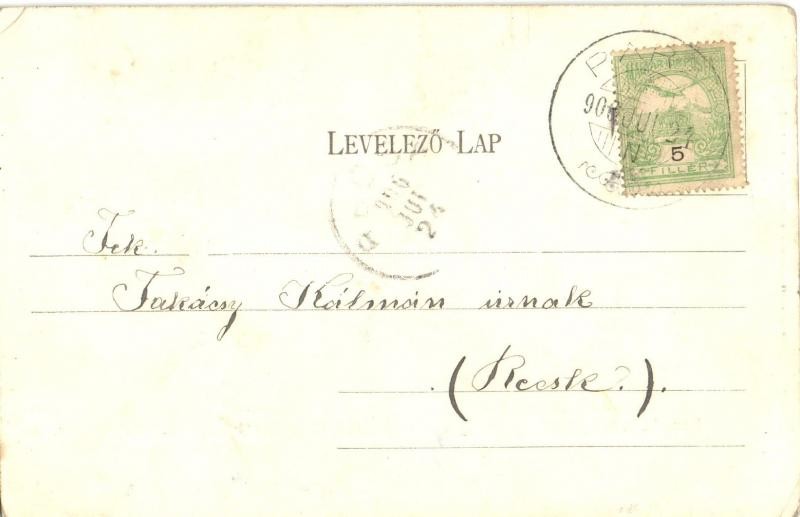 LEVELEZŐ LAP
5
FILLÉR
906 JUL 24
Tek.
Takácsy Kálmán úrnak
(Recsk.).